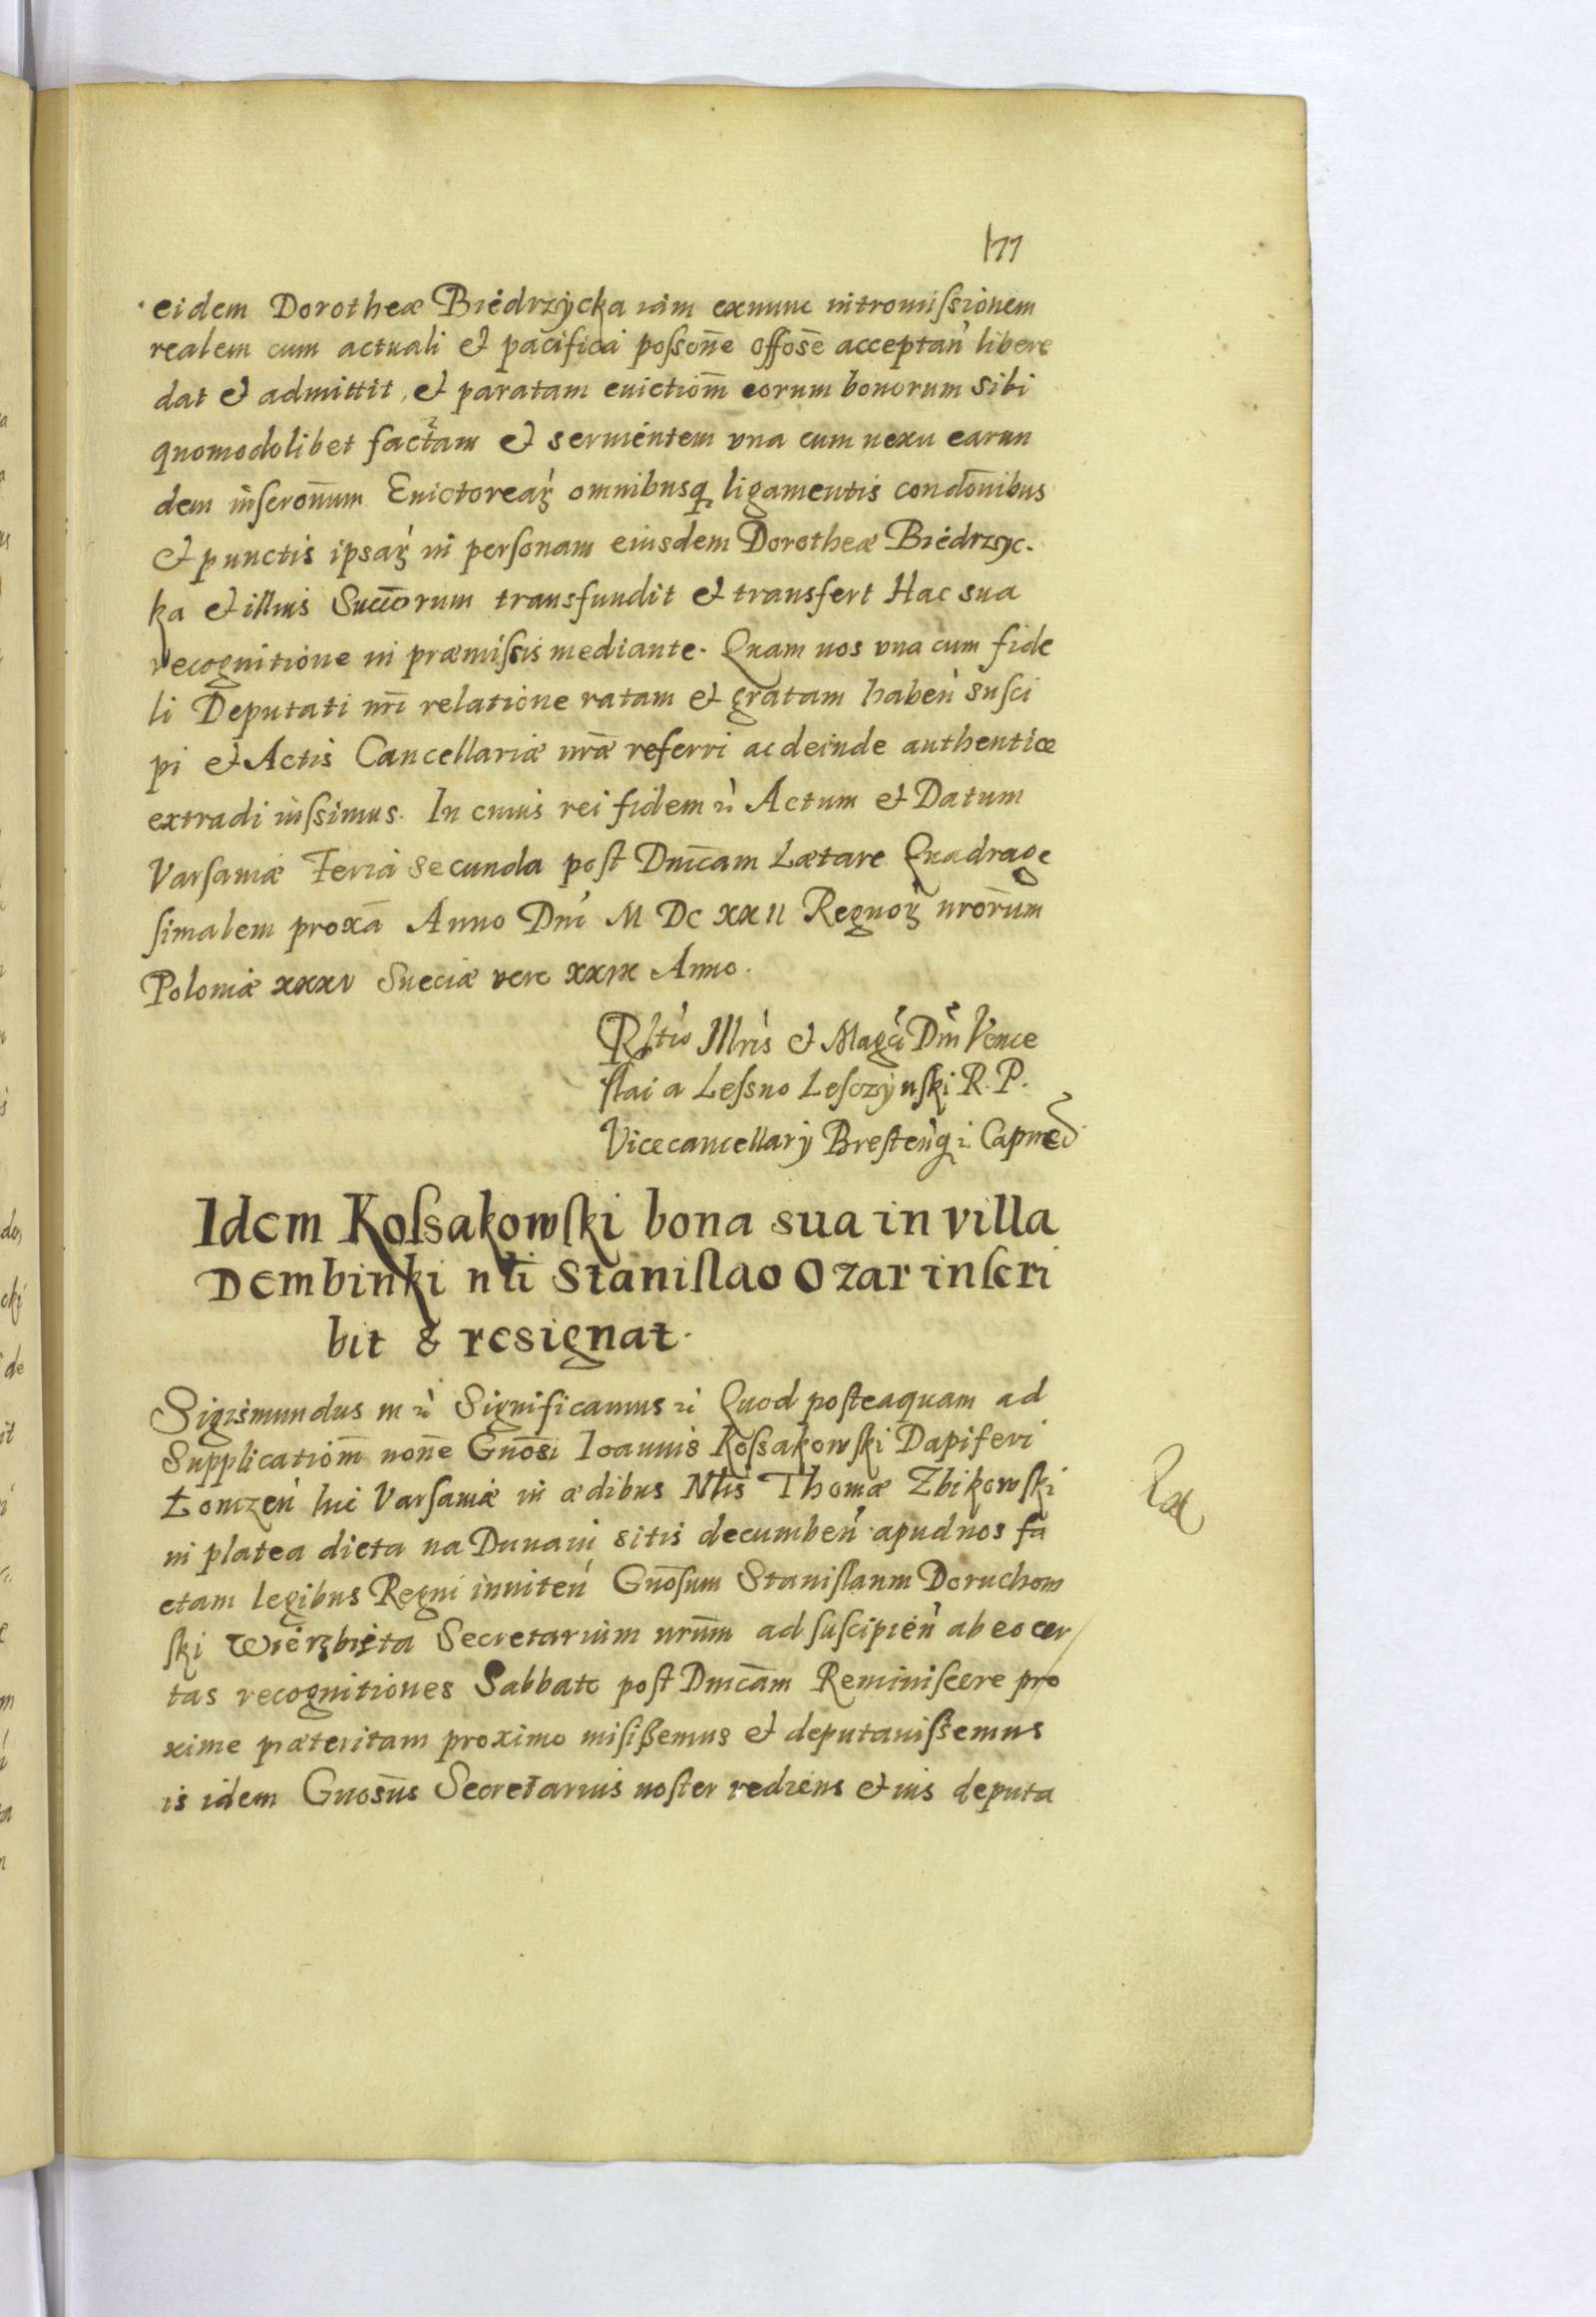 177
eidem Dorotheæ Biedrzÿcka iam exnunc intromiſsionem
realem cum actuali et pacifica poſsōne offose acceptan̄ libere
dat et admittit, et paratam euictiom̄ eorum bonorum sibi
quomodolibet factam et seruientem vna cum nexu earun
dem inſeron̄um Euictoreaꝝ omnibusqꝫ ligamentis condōnibus
et punctis ipsaꝝ in perſonam eiusdem Dorotheæ Biedrzyc-
ka et illius Succōrum transfundit et transfert Hac sua
recognitione in præmiſsis mediante. Quam nos vna cum fide
li Deputati nr̄i relatione ratam et gratam haben̄ suſci
pi et Actis Cancellariæ nrāe referri ac deinde authentice
extradi iuſsimus. In cuius rei fidem ꝛc̄ Actum et Datum
Varſauiæ Feria secunda poſt Dnīcam Lætare Quadrage
ſimalem proxā Anno Dnī M DC XXII Regnoꝝ nrōrum
Poloniæ xxxv Sueciæ vero xxix Anno.
Rltio Illris et Magci Dni Vence
ſlai a Leſsno Leſczÿnſki R. P.
Vicecancellarÿ Breſtenqꝫ ꝛc Capnei
Idem Koſsakowſki bona sua in villa
Dembinki nli Staniſlao Ozar inſcri
bit & resignat.
Sigismundus III ꝛc̄ Significamus ꝛc̄ Quod poſteaquam ad
Supplicatiom̄ non̄e Gnōsi Ioannis Koſsakowſki Dapiferi
Łomzen̄ hic Varſauiæ in ædibus Nlis Thomæ Zbikowſki
in platea dicta na Dunaiu sitis decumben̄ apud nos fa
ctam legibus Regni inniten̄ Gnōſum Staniſlaum Doruchow
ſki Wierzbięta Secretarium nrūm ad ſuſcipien̄ ab eo cer
tas recognitiones Sabbato poſt Dnicām Reminiſcere pro
xime præteritam proximo miſißemus et deputauiſsemus
is idem Gnosūs Secretarius noſter rediens et uis deputa